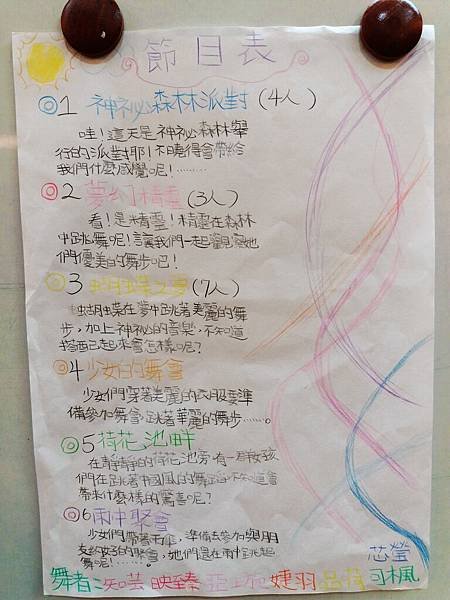 節目表
◎1 神祕森林派對(4人)
哇!這天是神祕森林舉
行的派對耶!不曉得會帶給
我們什麼感覺呢!………
◎2 夢幻精靈(3人)
看!是精靈!精靈在森林
中跳舞呢!讓我們一起觀賞她
們優美的舞步吧!
◎3 蝴蝶之夢(7人)
蝴蝶在夢中跳著美麗的舞
步,加上神祕的音樂,不知道
搭配起來會怎樣呢?
◎4 少女的舞會
少女們穿著美麗的衣服要準
備參加舞會,跳著華麗的舞步……。
◎5 荷花池畔
在靜靜的荷花池旁有一群女孩
們在跳著中國風的舞蹈不知道會
帶來什麼樣的驚喜呢?
◎6 雨中聚會
少女們帶著雨傘,準備去參加與朋
友約好的聚會,她們是在雨中跳起
舞呢!……。
芯瑩
舞者:知芸 映臻 婕羽 可楓